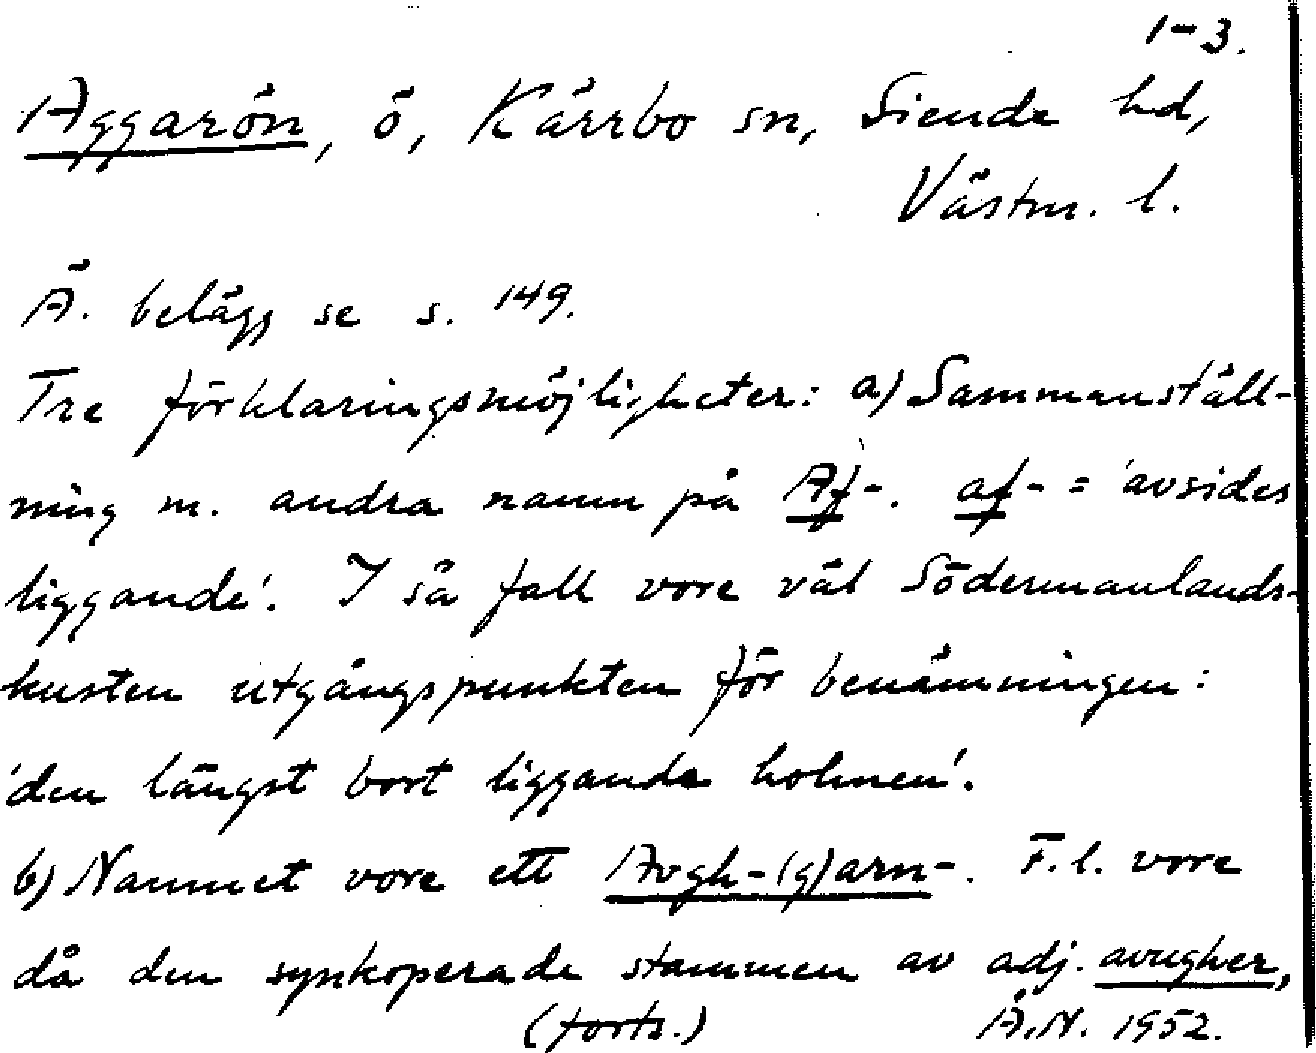 1-3.
Aggarön, ö, Kärrbo sn, Siende hd,
Västm. l.
Ä. belägg se s. 149.
Tre förklaringsmöjligheter: a) Sammanställ-
ning m. andra namn på Af-. af- = 'avsides
liggande'. I så fall vore väl Södermanlands-
kusten utgångspunkten för benämningen:
'den längst bort liggande holmen'.
b) Namnet vore ett Avgh-(g)arn-. F.l. vore
då den synkoperade stammen av adj. avugher,
(forts.) Å.N. 1952.